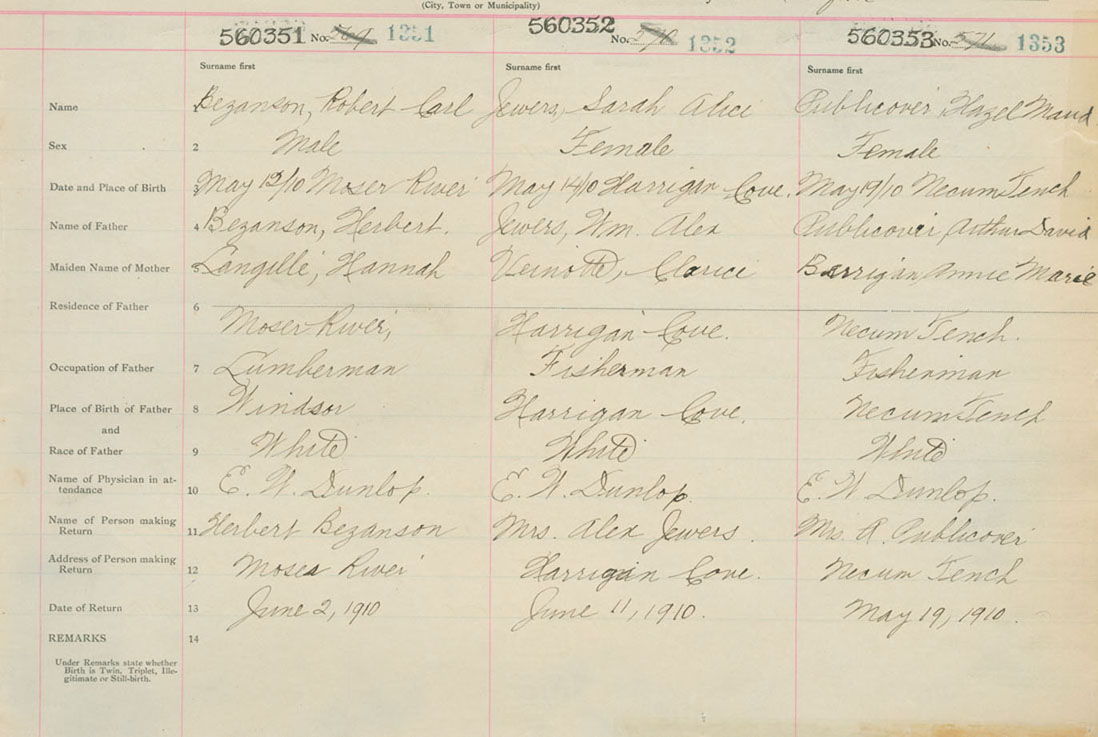 (City, Town or Municipality)
560351 No. 569 1351 560352 No. 570 1352 560353 No. 571 1353
Surname first Surname first Surname first
Name 1 Bezanson, Robert Carl Jewers, Sarah Alice Publicover, Hazel Maud
Sex 2 Male Female Female
Date and Place of Birth 3 May 12/10 Moser River May 14/10 Harrigan Cove. May 19/10 Necum Tench
Name of Father 4 Bezanson, Herbert. Jewers, Wm. Alex Publicover, Arthur David
Maiden Name of Mother 5 Langille, Hannah Veinotte, Clarice Barrigan, Annie Marie
Residence of Father 6 Moser River, Harrigan Cove. Necum Tench.
Occupation of Father 7 Lumberman Fisherman Fisherman
Place of Birth of Father 8 Windsor Harrigan Cove. Necum Tench
and
Race of Father 9 White White White
Name of Physician in at-
tendance 10 E. W. Dunlop. E. W. Dunlop. E. W Dunlop.
Name of Person making
Return 11 Herbert Bezanson Mrs. Alex Jewers. Mrs. A. Publicover
Address of Person making
Return 12 Moses River Harrigan Cove. Necum Tench
Date of Return 13 June 2, 1910 June 11, 1910. May 19, 1910.
REMARKS 14
Under Remarks state whether
Birth is Twin, Triplet, Ille-
gitimate or Still-birth.